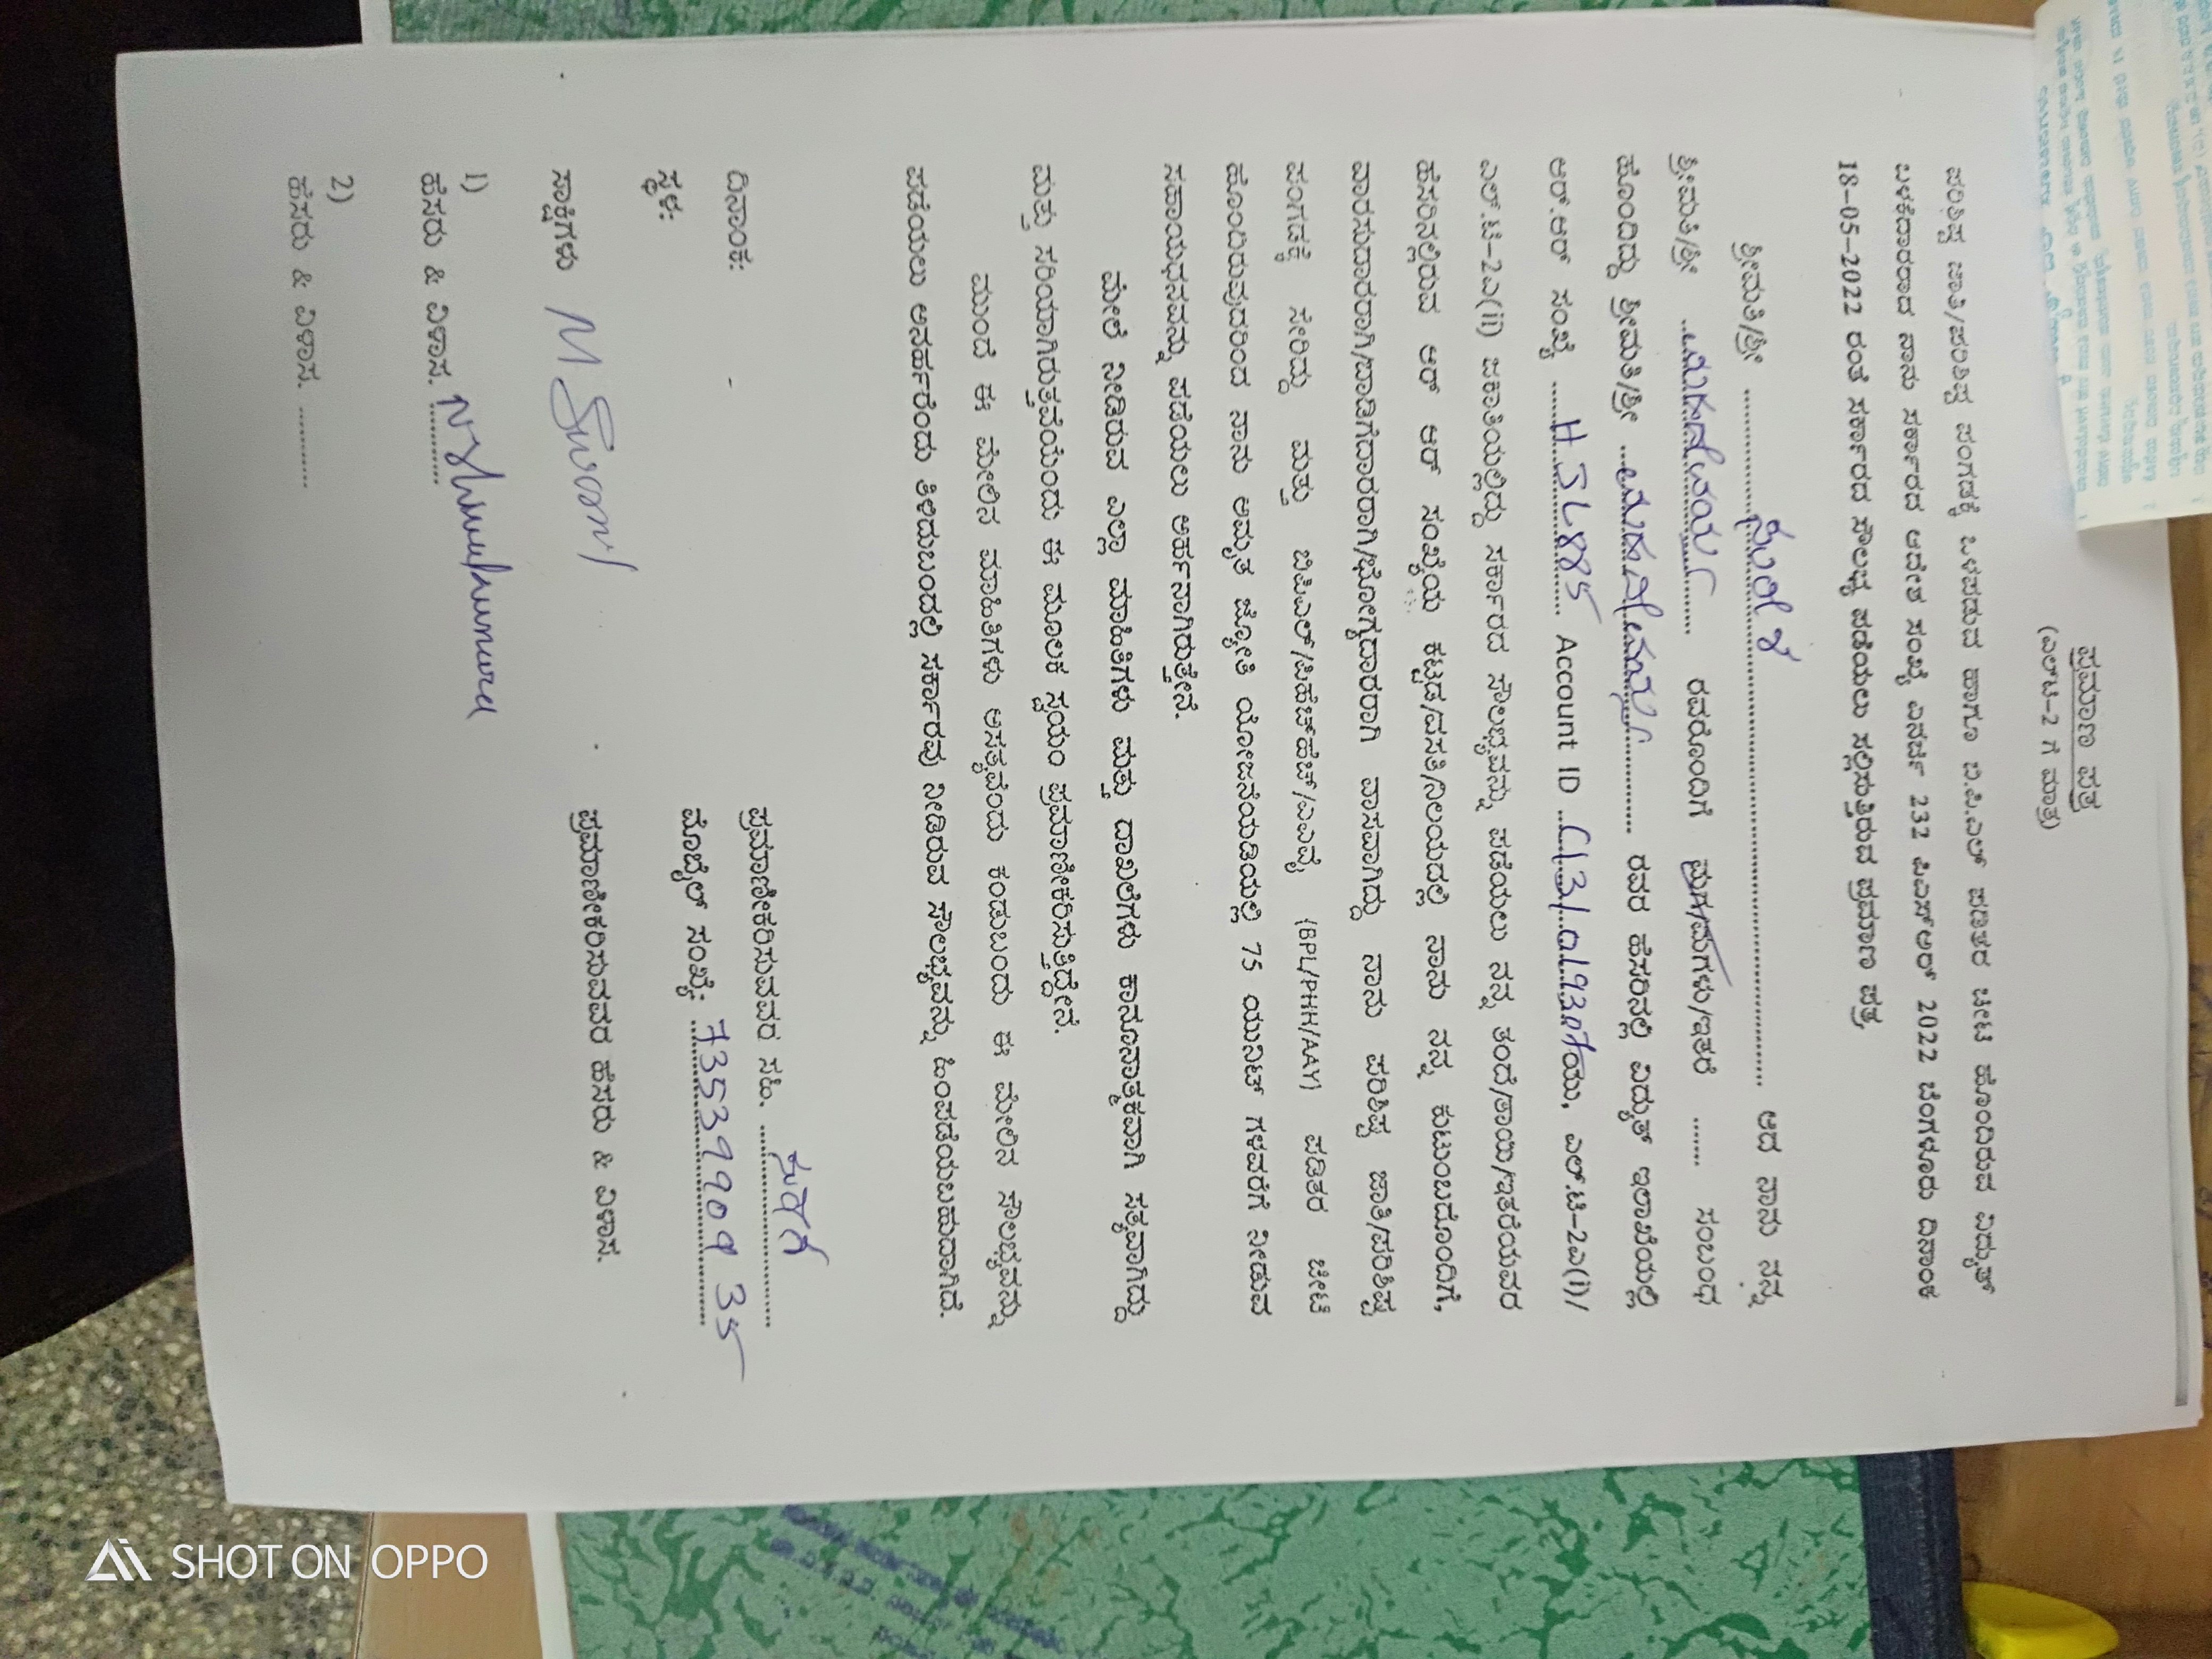 ಪ್ರಮಾಣ ಪತ್ರ
(ಎಲ್‌ಟಿ-2 ಗೆ ಮಾತ್ರ)
ಪರಿಶಿಷ್ಟ ಜಾತಿ/ಪರಿಶಿಷ್ಟ ಪಂಗಡಕ್ಕೆ ಒಳಪಡುವ ಹಾಗೂ ಬಿ.ಪಿ.ಎಲ್ ಪಡಿತರ ಚೀಟಿ ಹೊಂದಿರುವ ವಿದ್ಯುತ್
ಬಳಕೆದಾರರಾದ ನಾನು ಸರ್ಕಾರದ ಆದೇಶ ಸಂಖ್ಯೆ ಎನರ್ಜಿ 232 ಪಿಎಸ್‌ಆರ್ 2022 ಬೆಂಗಳೂರು ದಿನಾಂಕ
18-05-2022 ರಂತೆ ಸರ್ಕಾರದ ಸೌಲಭ್ಯ ಪಡೆಯಲು ಸಲ್ಲಿಸುತ್ತಿರುವ ಪ್ರಮಾಣ ಪತ್ರ
ಶ್ರೀಮತಿ/ಶ್ರೀ .................... ಆದ ನಾನು ನನ್ನ
ಶ್ರೀಮತಿ/ಶ್ರೀ .......... ರವರೊಂದಿಗೆ ಮಗ/ಮಗಳು/ಇತರೆ ...... ಸಂಬಂಧ
ಹೊಂದಿದ್ದು ಶ್ರೀಮತಿ/ಶ್ರೀ .......... ರವರ ಹೆಸರಿನಲ್ಲಿ ವಿದ್ಯುತ್ ಇಲಾಖೆಯಲ್ಲಿ
ಆರ್.ಆರ್ ಸಂಖ್ಯೆ ..... H3L885 ..... Account ID ಯು, ಎಲ್.ಟಿ-2ಎ(i)/
ಎಲ್.ಟಿ-2ಎ(ii) ಜಕಾತಿಯಲ್ಲಿದ್ದು ಸರ್ಕಾರದ ಸೌಲಭ್ಯವನ್ನು ಪಡೆಯಲು ನನ್ನ ತಂದೆ/ತಾಯಿ/ಇತರೆಯವರ
ಹೆಸರಿನಲ್ಲಿರುವ ಆರ್ ಆರ್ ಸಂಖ್ಯೆಯ ಕಟ್ಟಡ/ವಸತಿ/ನಿಲಯದಲ್ಲಿ ನಾನು ನನ್ನ ಕುಟುಂಬದೊಂದಿಗೆ,
ವಾರಸುದಾರರಾಗಿ/ಬಾಡಿಗೆದಾರರಾಗಿ/ಭೋಗ್ಯದಾರರಾಗಿ ವಾಸವಾಗಿದ್ದು ನಾನು ಪರಿಶಿಷ್ಟ ಜಾತಿ/ಪರಿಶಿಷ್ಟ
ಪಂಗಡಕ್ಕೆ ಸೇರಿದ್ದು ಮತ್ತು ಬಿಪಿಎಲ್/ಪಿಹೆಚ್‌ಹೆಚ್/ಎಎವೈ (BPL/PHH/AAY) ಪಡಿತರ ಚೀಟಿ
ಹೊಂದಿರುವುದರಿಂದ ನಾನು ಅಮೃತ ಜ್ಯೋತಿ ಯೋಜನೆಯಡಿಯಲ್ಲಿ 75 ಯುನಿಟ್ ಗಳವರೆಗೆ ನೀಡುವ
ಸಹಾಯಧನವನ್ನು ಪಡೆಯಲು ಅರ್ಹನಾಗಿರುತ್ತೇನೆ.
ಮೇಲೆ ನೀಡಿರುವ ಎಲ್ಲಾ ಮಾಹಿತಿಗಳು ಮತ್ತು ದಾಖಲೆಗಳು ಕಾನೂನಾತ್ಮಕವಾಗಿ ಸತ್ಯವಾಗಿದ್ದು
ಮತ್ತು ಸರಿಯಾಗಿರುತ್ತವೆಯೆಂದು ಈ ಮೂಲಕ ಸ್ವಯಂ ಪ್ರಮಾಣೀಕರಿಸುತ್ತಿದ್ದೇನೆ.
ಮುಂದೆ ಈ ಮೇಲಿನ ಮಾಹಿತಿಗಳು ಅಸತ್ಯವೆಂದು ಕಂಡುಬಂದು ಈ ಮೇಲಿನ ಸೌಲಭ್ಯವನ್ನು
ಪಡೆಯಲು ಅನರ್ಹರೆಂದು ತಿಳಿದುಬಂದಲ್ಲಿ ಸರ್ಕಾರವು ನೀಡಿರುವ ಸೌಲಭ್ಯವನ್ನು ಹಿಂಪಡೆಯಬಹುದಾಗಿದೆ.
ಪ್ರಮಾಣೀಕರಿಸುವವರ ಸಹಿ. ..........
ದಿನಾಂಕ:
ಮೊಬೈಲ್ ಸಂಖ್ಯೆ: 7353990935
ಸ್ಥಳ:
ಪ್ರಮಾಣೀಕರಿಸುವವರ ಹೆಸರು & ವಿಳಾಸ.
ಸಾಕ್ಷಿಗಳು
1)
ಹೆಸರು & ವಿಳಾಸ. ..........
2)
ಹೆಸರು & ವಿಳಾಸ. ..........
SHOT ON OPPO